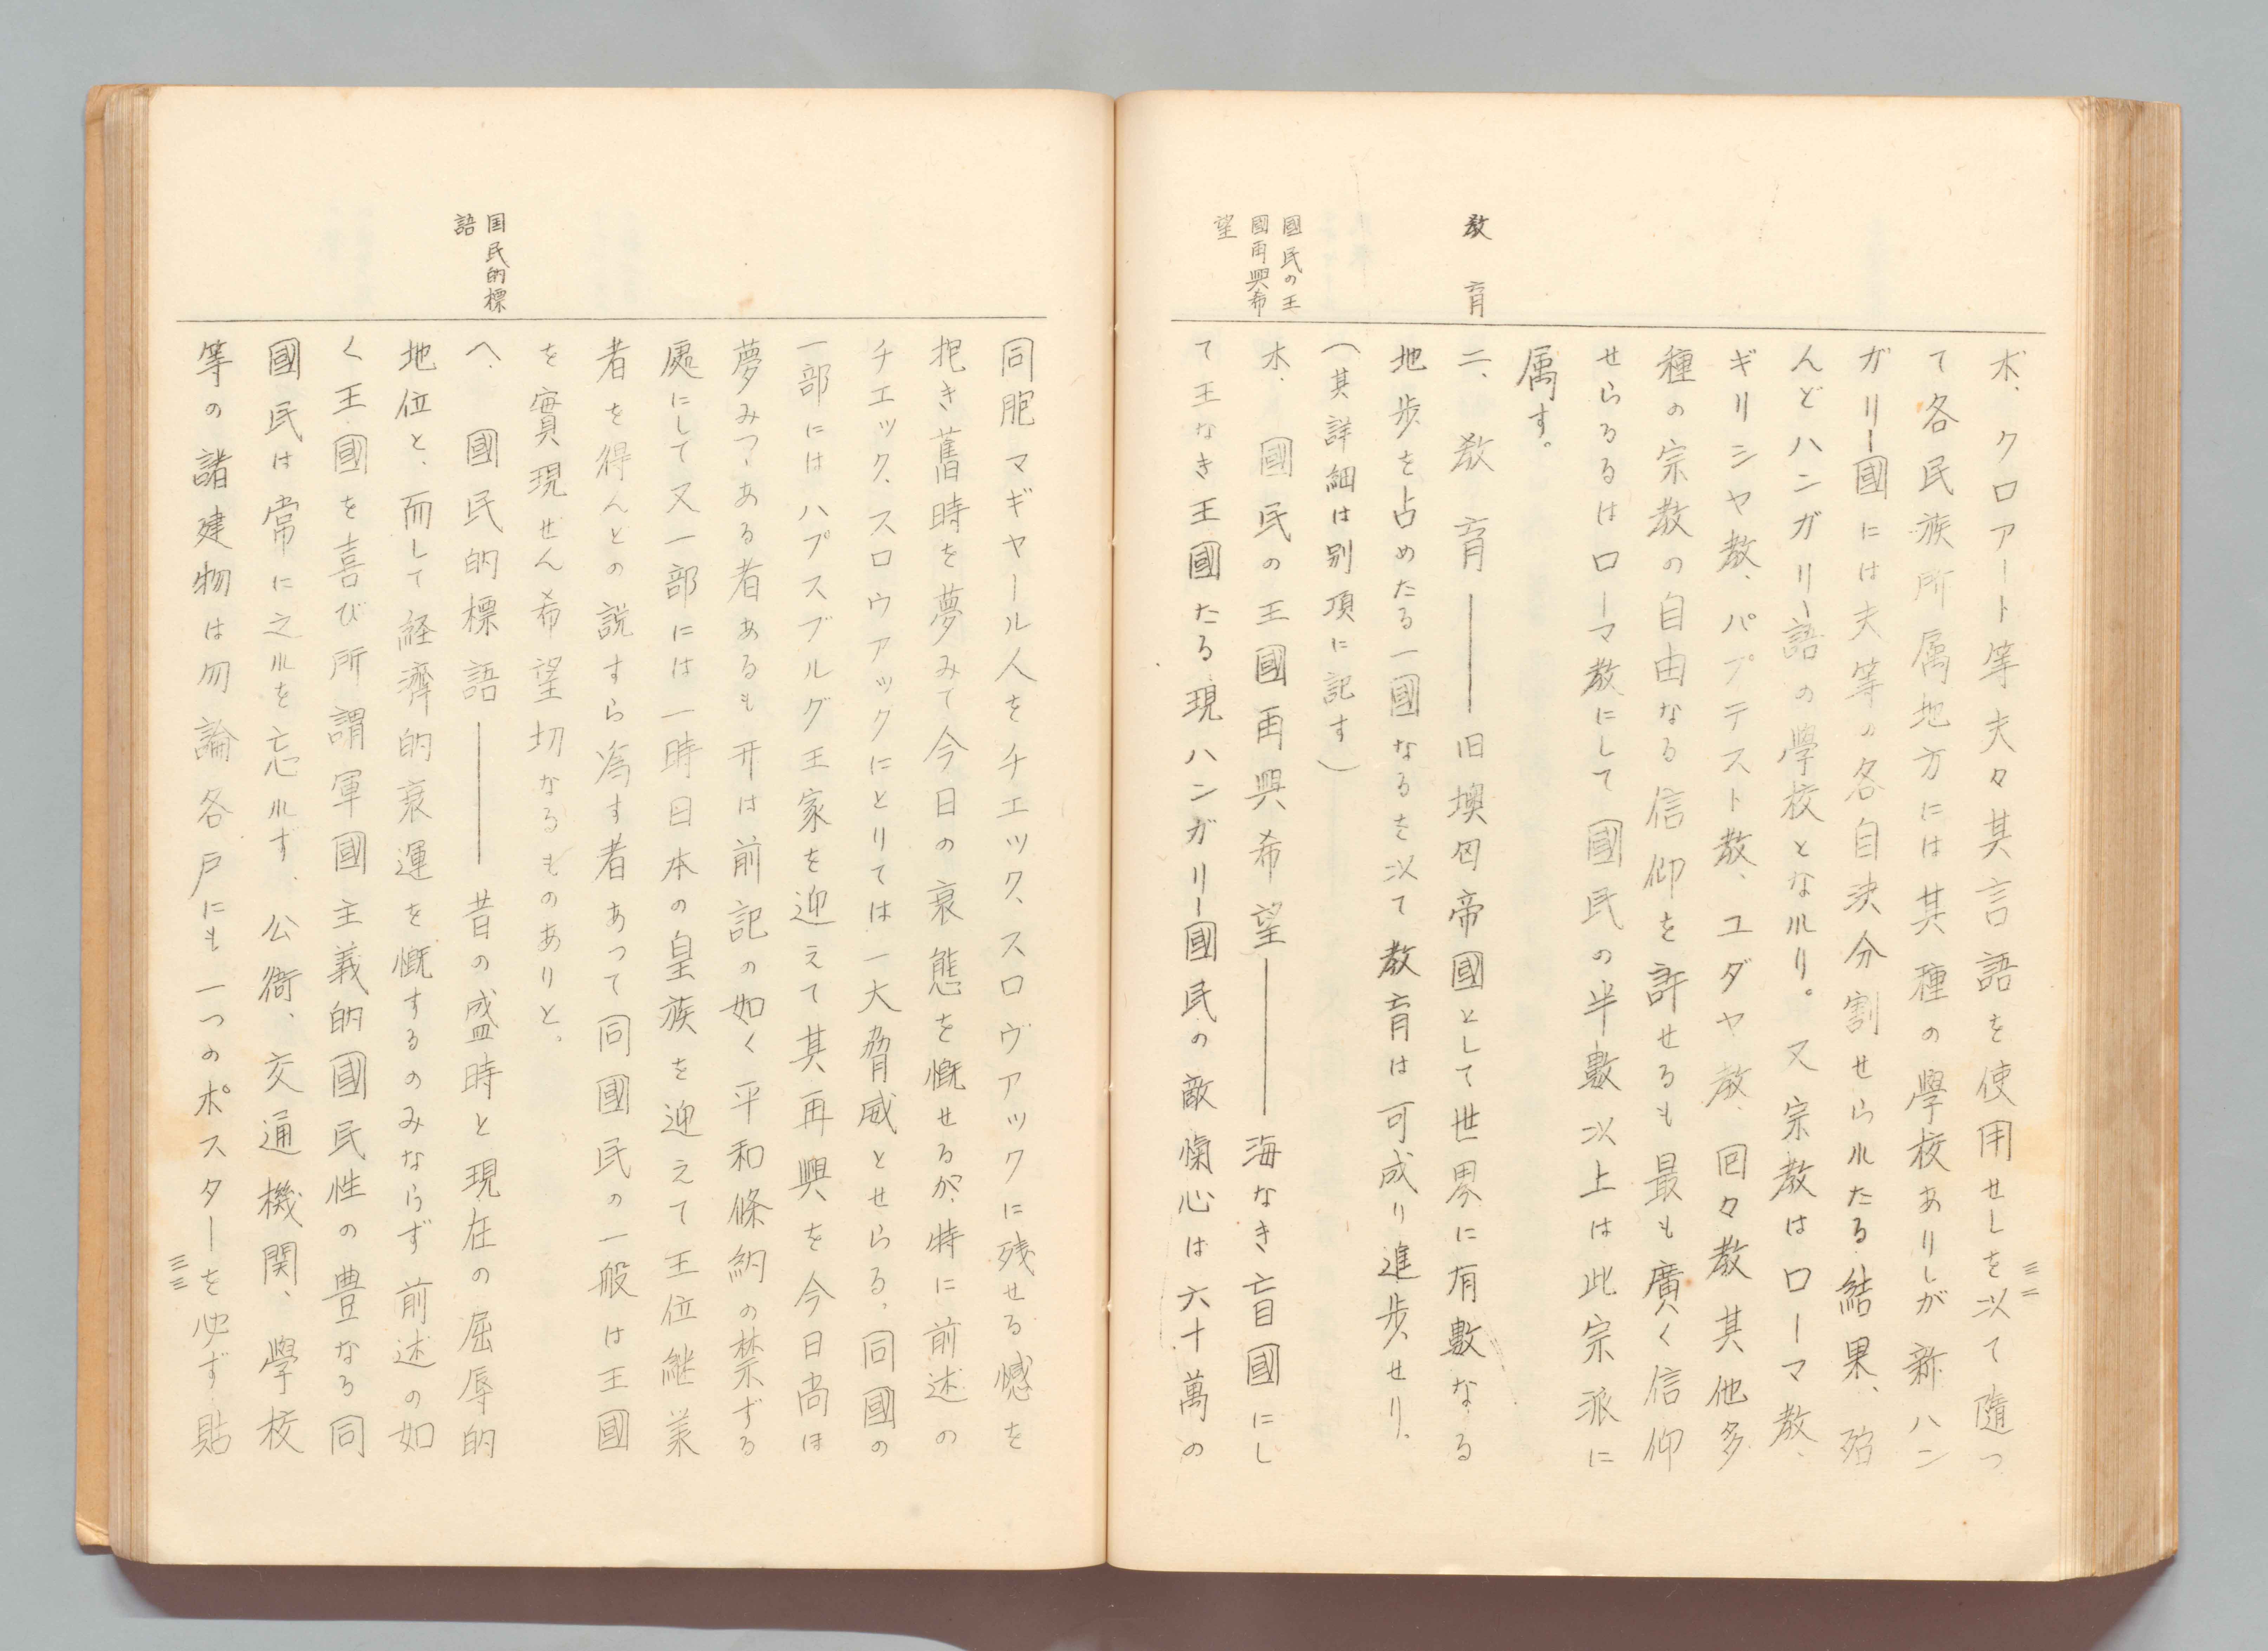 教育
國民の王
國再興希
望
ホ、クロアート等夫々其言語を使用せしを以て隨つ
て各民族所属地方には其種の學校ありしが新ハン
ガリー國には夫等の各自決分割せられたる結果、殆
んどハンガリー語の學校となれり。又宗教はローマ教、
ギリシヤ教、パプテスト教、ユダヤ教、回々教其他多
種の宗教の自由なる信仰を許せるも最も廣く信仰
せらるるはローマ教にして國民の半數以上は此宗派に
属す。
二、教育——旧墺匈帝國として世界に有數なる
地歩を占めたる一國なるを以て教育は可成り進歩せり、
(其詳細は别項に記す)
ホ、國民の王國再興希望——海なき盲國にし
て王なき王國たる現ハンガリー國民の敵愾心は六十萬の
三二
国民的標
語
同胞マギャール人をチエック、スロヴアックに残せる憾を
抱き舊時を夢みて今日の衰態を慨せるが、特に前述の
チエック、スロウアックにとりては一大脅威とせらる、同國の
一部にはハプスブルグ王家を迎えて其再興を今日尚ほ
夢みつゝある者あるも开は前記の如く平和條約の禁ずる
處にして又一部には一時日本の皇族を迎えて王位継業
者を得んとの説すら為す者あつて同國民の一般は王國
を實現せん希望切なるものありと、
ヘ、國民的標語——昔の盛時と現在の屈辱的
地位と、而して経濟的衰運を慨するのみならず前述の如
く王國を喜び所謂軍國主義的國民性の豊なる同
國民は常に之れを忘れず、公衙、交通機関、學校
等の諸建物は勿論各戸にも一つのポスターを必ず貼
三三